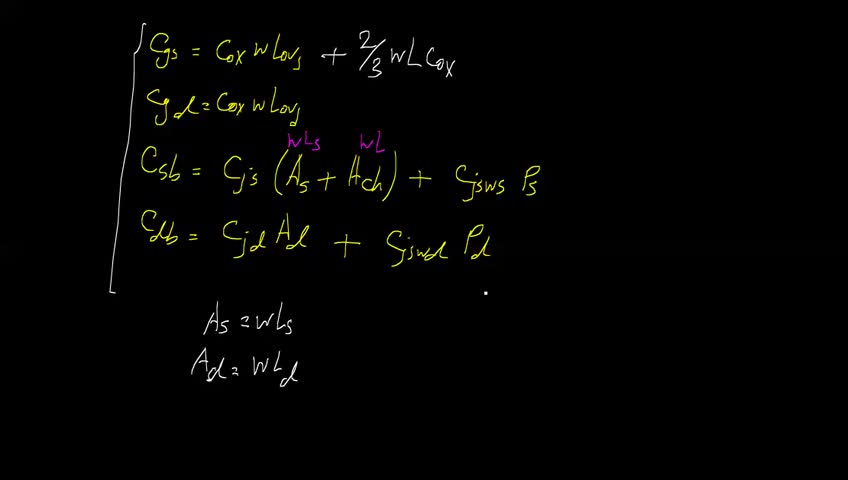 Cgs = Cox W Lovs + 2/3 WL Cox
Cgd = Cox W Lovd
WLs WL
Csb = Cjs (As + Ach) + Cjsws Ps
Cdb = Cjd Ad + Cjswd Pd
As = WLs
Ad = WLd